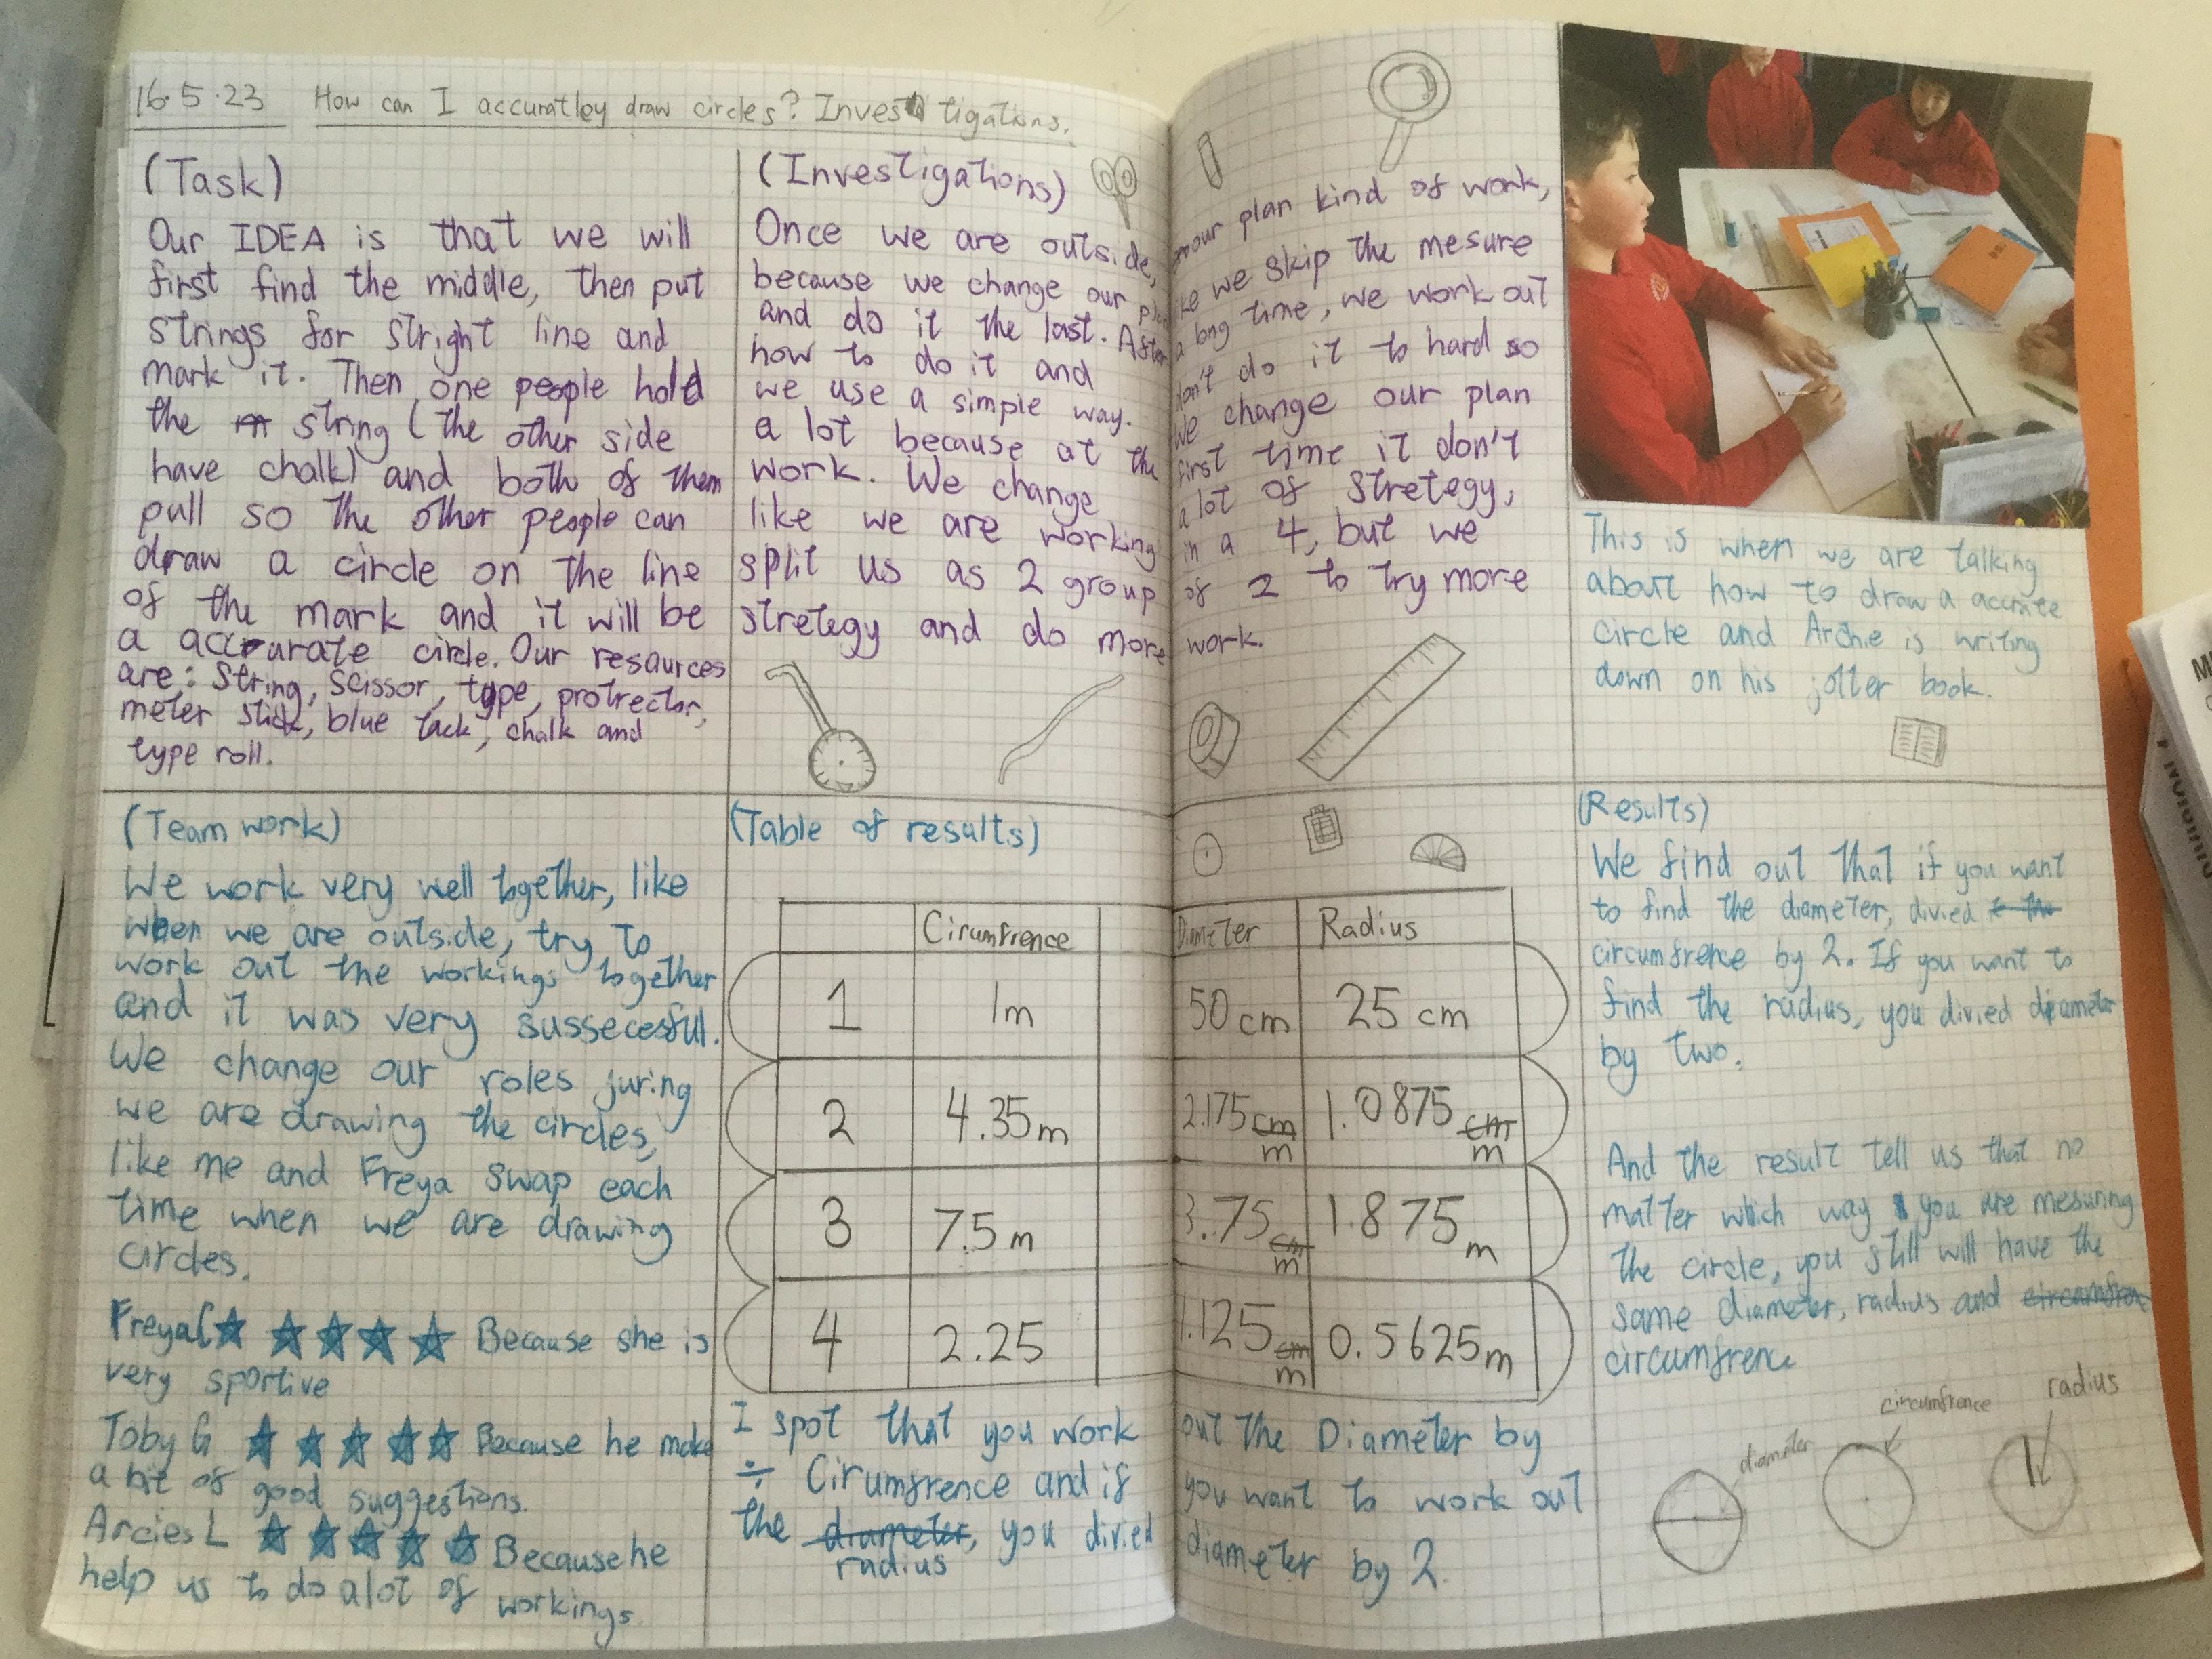 16.5.23 How can I accuratley draw circles? Investigations.
(Task)
Our IDEA is that we will
first find the middle, then put
strings for stright line and
mark it. Then one people hold
the string (the other side
have chalk) and both of them
pull so the other people can
draw a circle on the line
of the mark and it will be
a accurate circle. Our resources
are: string, scissor, type, protrector,
meter stick, blue tack, chalk and
type roll.
(Investigations)
Once we are outside, our plan kind of work,
because we change our we skip the mesure
and do it the last. After a long time, we work out
how to do it and don't do it to hard so
we use a simple way. We change our plan
a lot because at the first time it don't
work. We change a lot of stretegy,
like we are working in a 4, but we
split us as 2 group of 2 to try more
stretegy and do more work.
This is when we are talking
about how to draw a accrate
circle and Archie is writing
down on his jotter book.
(Team work)
We work very well together, like
when we are outside, try to
work out the workings together
and it was very sussecesful.
We change our roles juring
we are drawing the circles,
like me and Freya swap each
time when we are drawing
circles.
Because she is
very sportive
Toby G Because he make
a bit of good suggestions.
Arcies L Because he
help us to do a lot of workings.
(Table of results)
Cirumfrence Diameter Radius
1 1m 50 cm 25 cm
2 4.35m 2.175 cm m 1.0875 cm m
3 7.5 m 3.75 cm m 1.875 m
4 2.25 1.125 cm m 0.5625m
I spot that you work out the Diameter by
÷ Cirumfrence and if you want to work out
the diameter, you divied diameter by 2.
radius
(Results)
We find out that if you want
to find the diameter, divied
circumfrence by 2. If you want to
find the radius, you divied diameter
by two.
And the result tell us that no
matter which way you are mesuring
the circle, you still will have the
same diameter, radius and circumfren
circumfrence
diameter
circumfrence
radius